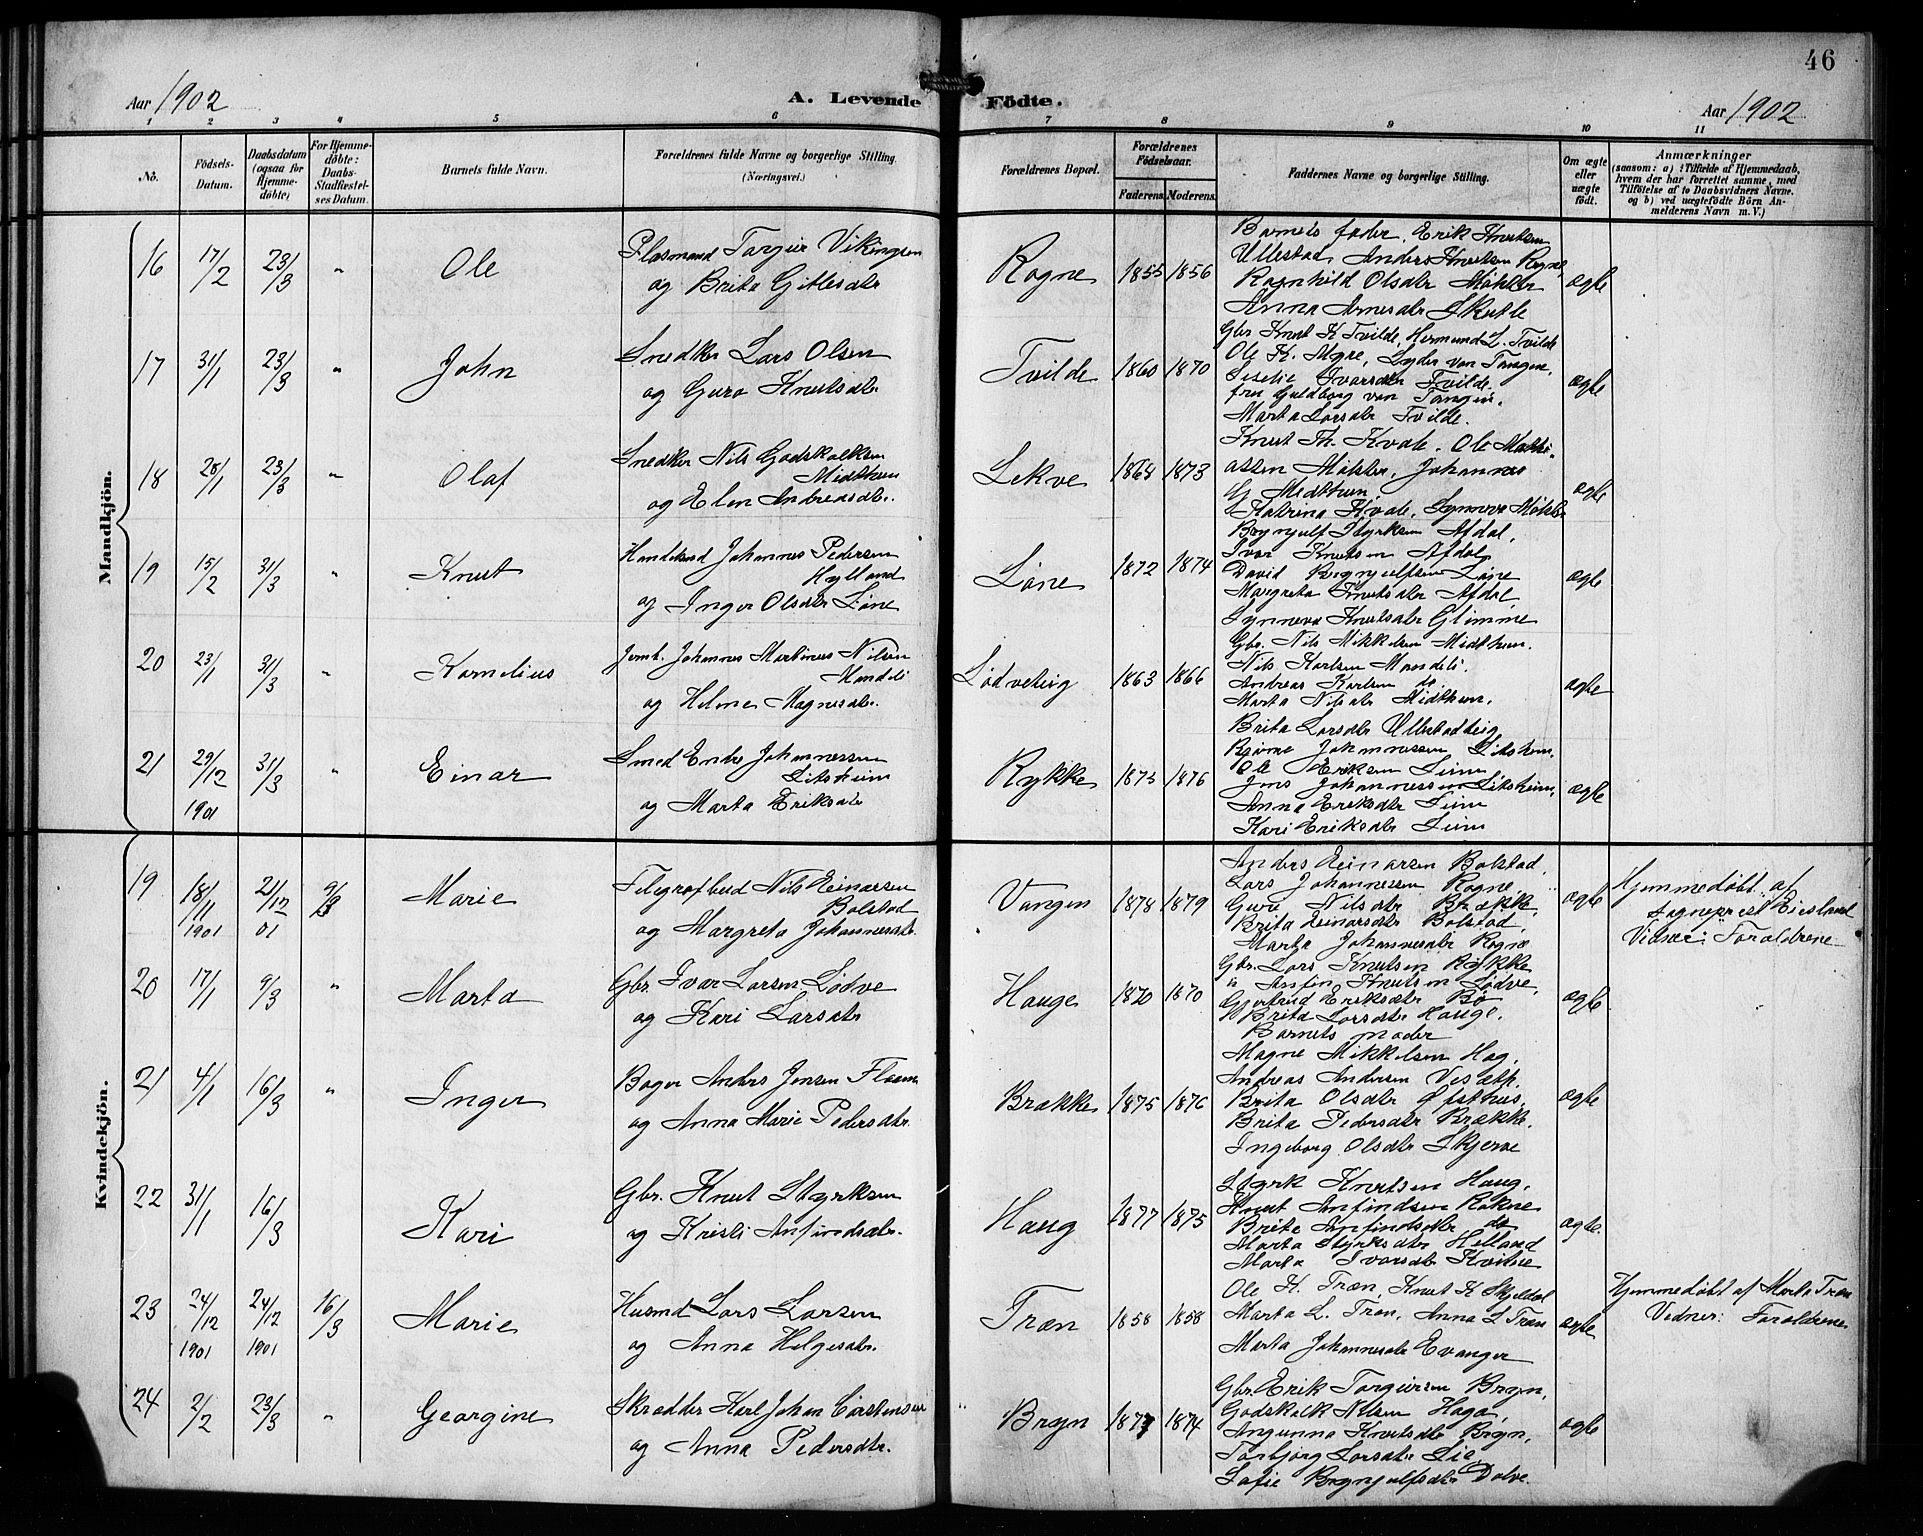 46
Aar 1902
A. Levende Födte.
Aar 1902
1 2 3 4 5 6 7 8 9 10 11
No.
Födsels-Datum.
Daabsdatum (ogsaa for Hjemmedöbte)
For Hjemmedöbte: Daabs-Stadfæstelses Datum.
Barnets fulde Navn.
Forældrenes fulde Navne og borgerlige Stilling. (Næringsvei.)
Forældrenes Bopæl.
Forældrenes Födselsaar.
Faderens. Moderens.
Faddernes Navne og borgerlige Stilling.
Om ægte eller uægte födt.
Anmærkninger
(saasom: a) i Tilfælde af Hjemmedaab, hvem der har forrettet samme, med Tilföielse af to Daabsvidners Navne, og b) ved uægtefödte Börn Anmelderens Navn m. V.)
Mandkjön.
16 17/2 23/3 " Ole
Plasmand Torgeir Vikingsen
og Brita Gitlesdtr
Rogne 1855 1856
Barnets fader, Erik Knutsen
Ullestad, Anders Knutsen Rogne,
Ragnhild Olsdtr Møhlster
Anna Arnesdtr Skutle
ægte
17 31/1 23/3 " John
Snedker Lars Olsen
og Guro Knutsdtr.
Tvilde 1860 1870
Gbr. Knut K. Tvilde, Hermund L. Tvilde
Ole K. Myre, Lyder von Tangen,
Seselie Ivarsdtr Tvilde.
fru Guldborg von Tangen,
Marta Larsdtr Tvilde.
ægte
18 28/1 23/3 " Olaf
Snedker Nils Godskalksen
Midthun
og Elen Andreasdtr.
Lekve 1864 1873
Knut Th. Kvale. Ole Mathi-
assen Mølster, Johannes
G. Midthun,
Katrina Kvale, Synneve Møhlst.
ægte
19 15/2 31/3 " Knut
Handelsmd Johannes Pedersen
Hylland
og Inger Olsdtr Løne
Løne 1872 1874
Brynjulf Styrksen Afdal,
Ivar Knutsen Afdal,
David Brynjulfsen Løne
Margreta Knutsdtr Afdal
Synneva Knutsdtr Glimme
ægte
20 23/1 31/3 " Kornelius
Jernb. Johannes Martinus Nilsen
Mandeli
og Helene Magnesdtr.
Lødveteig 1863 1866
Gbr. Nils Mikkelsen Midthun.
Nils Karlsen Mandeli.
Andreas Karlsen do
Marta Nilsdtr Midthun.
Brita Larsdtr Ullestadteig
ægte
21 29/12 1901 31/3 " Einar
Smed Endre Johannessen
Litsheim
og Marta Eriksdtr
Rykke 1873 1876
Bjørne Johannessen Litsheim.
Ole Eriksen Seim
Jons Johannessen Litsheim,
Anna Eriksdtr Seim
Kari Eriksdtr Seim
ægte
Kvindekjön.
19 18/11 1901 21/12 01 9/3 Marie
Telegrafbud Nils Einarsen
Bolstad
og Margreta Johannesdtr.
Vangen 1878 1879
Anders Einarsen Bolstad,
Lars Johannessen Rogne,
Guro Nilsdtr Brække,
Brita Einarsdtr Bolstad,
Marta Johannesdtr Rogne
ægte
Hjemmedøbt af
sogneprest Eiesland
Vidner: Forældrene
20 17/1 9/3 " Marta
Gbr. Ivar Larsen Lødve
og Kari Larsdtr
Hauge 1870 1870
Gbr. Lars Knutsen Rykke
" Anfin Knutsen Lødve,
Gjertrud Eriksdtr Bø
Brita Larsdtr Hauge.
Barnets moder
ægte
21 4/1 16/3 " Inger
Bager Anders Jensen Flaam
og Anna Marie Pedersdtr.
Brække 1875 1876
Magne Mikkelsen Hag,
Andreas Andersen
Brita Olsdtr Østhus,
Brita Pedersdtr Brække.
Ingeborg Olsdtr Skjerve
ægte
22 31/1 16/3 Kari
Gbr. Knut Styrksen
og Kristi Anfindsdtr.
Haug 1877 1875
Styrk Knutsen Haug,
Knut Anfindsen Rokne
Brita Anfindsdtr do
Marta Styrksdtr Helland
Marta Ivarsdtr Kvitne
ægte.
23 24/12 1901 24/12 1901 16/3 Marie
Husmd Lars Larsen
og Anna Helgesdtr.
Træn 1858 1858
Ole H. Træn, Knut K. Skjeldal
Marta L. Træn, Anna L Træn
Marta Johannesdtr Evanger
ægte
Hjemmedøbt af Marta Træn
Vidner: Forældrene
24 2/2 23/3 " Georgine
Skrædder Karl Johan Carstensen
og Anna Pedersdtr.
Bryn 1877 1874
Gbr. Erik Torgiersen Bryn,
Godskalk Nilsen Haga,
Angunna Knutsdtr Bryn,
Torbjørg Larsdtr Lie,
Sofie Brynjulfsdtr Dolve.
ægte